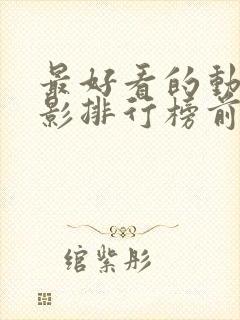 最好看的動
影排行榜前
綰紫彤